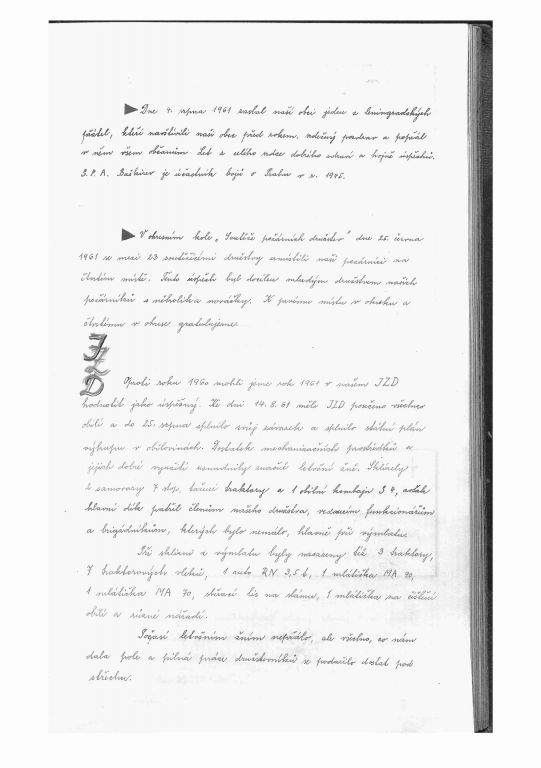 Dne 4. srpna 1961 zaslal naší obci jeden z leningradských
přátel, kteří navštívili naši obec před rokem, srdečný pozdrav a popřál
v něm všem občanům Let z celého srdce dobrého zdraví a hojně úspěchů.
S. P. A. Baškirev je účastník bojů o Prahu v r. 1945.
V okresním kole „Soutěže požárních družstev" dne 25. června
1961 se mezi 23 soutěžícími družstvy umístili naši požárníci na
čtvrtém místě. Tento úspěch byl docílen mladým družstvem našich
požárníků s několika nováčky. K prvnímu místu v okrsku a
čtvrtému v okrese gratulujeme.
JZD
Oproti roku 1960 mohli jsme rok 1961 v našem JZD
hodnotit jako úspěšný. Ke dni 14. 8. 61 mělo JZD posečeno všechno
obilí a do 25. srpna splnilo svůj závazek a splnilo státní plán
výkupu v obilovinách. Dostatek mechanizačních prostředků a
jejich dobré využití usnadnily značně letošní žně. Sklízely
2 samovazy 7 stop, tažené traktory a 1 obilní kombajn S 4, avšak
hlavní dík patřil členům našeho družstva, vedoucím funkcionářům
a brigádníkům, kterých bylo nemálo, hlavně při výmlatu.
Při sklizni a výmlatu byly nasazeny též 3 traktory,
7 traktorových vleků, 1 auto RN 3,5 t, 1 mlátička MA 90,
1 mlátička MA 70, stírací lis na slámu, 1 mlátička na čištění
obilí a různé nářadí.
Počasí letošním žním nepřálo, ale všechno, co nám
dala pole a pilná práce družstevníků se podařilo dostat pod
střechu.